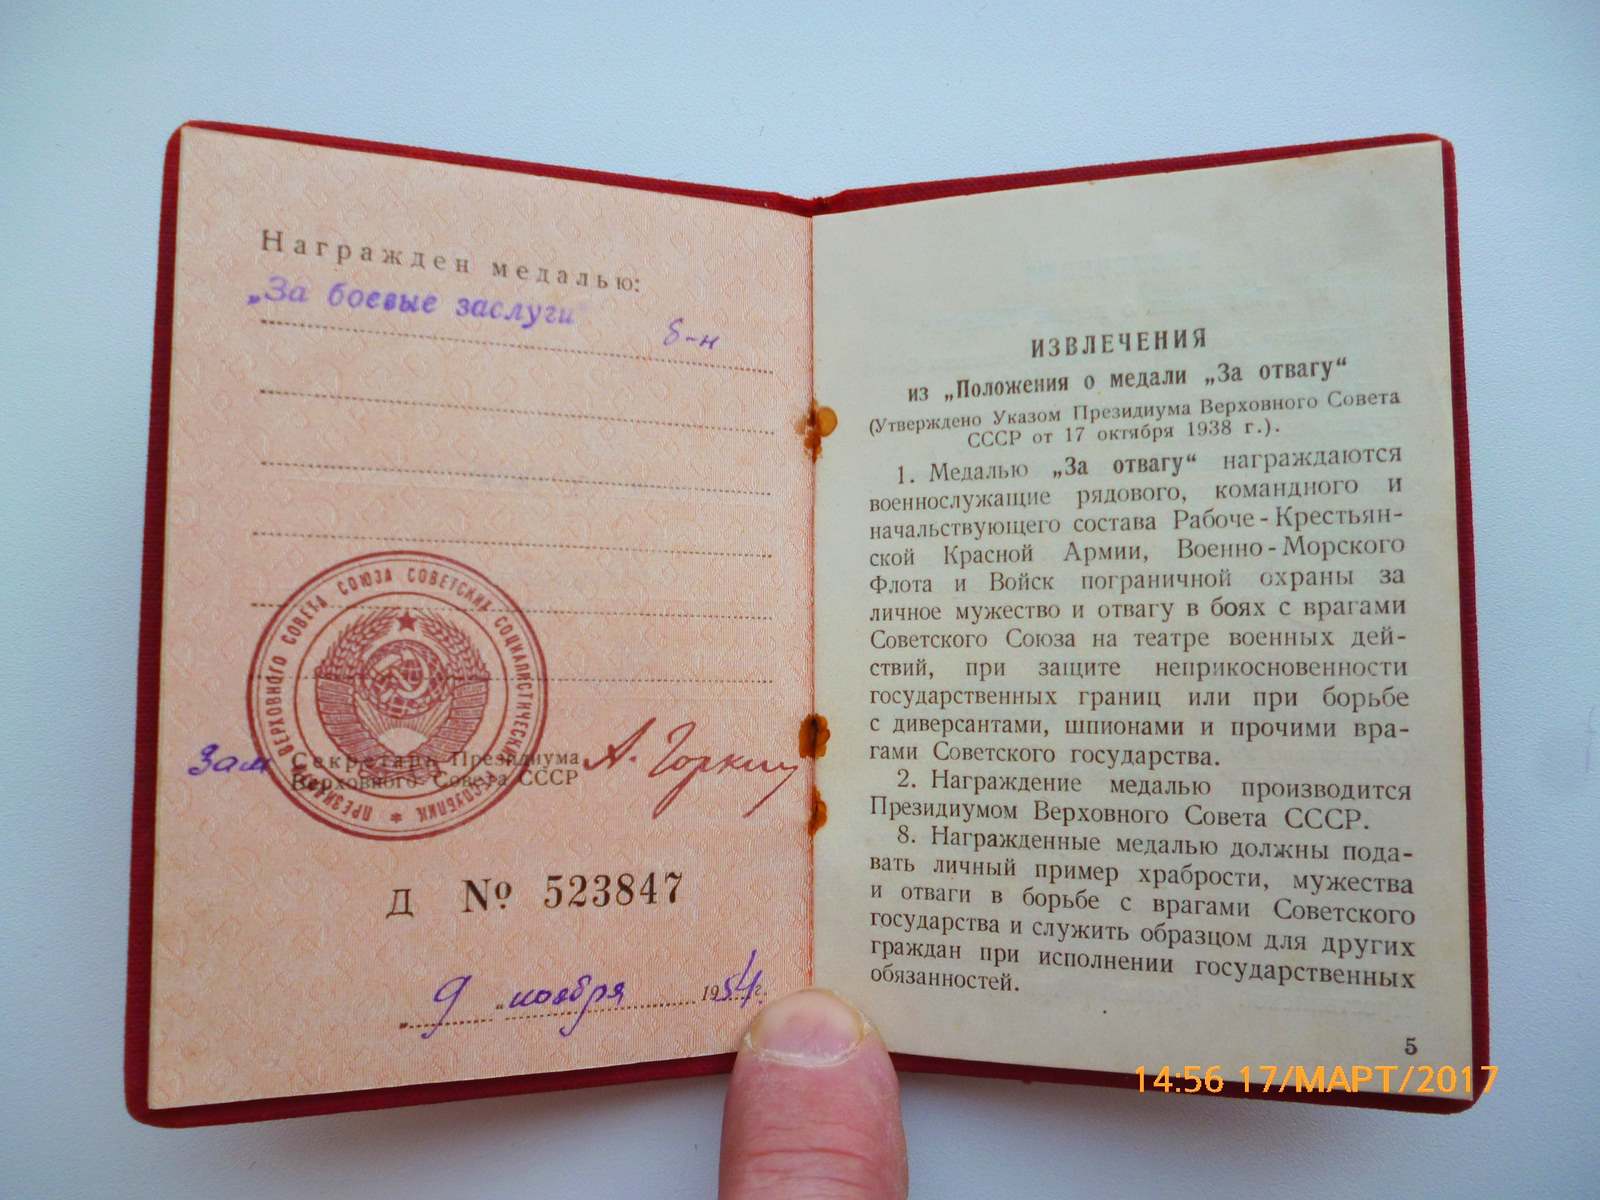 Награжден медалью:
„За боевые заслуги" б-н
ПРЕЗИДИУМ ВЕРХОВНОГО СОВЕТА СОЮЗА СОВЕТСКИХ СОЦИАЛИСТИЧЕСКИХ РЕСПУБЛИК *
Зам Секретарь Президиума
Верховного Совета СССР
А. Горкин
Д № 523847
„9 „ ноября 1954 г.
ИЗВЛЕЧЕНИЯ
из „Положения о медали „За отвагу“
(Утверждено Указом Президиума Верховного Совета
СССР от 17 октября 1938 г.).
1. Медалью „За отвагу“ награждаются
военнослужащие рядового, командного и
начальствующего состава Рабоче-Крестьян-
ской Красной Армии, Военно-Морского
Флота и Войск пограничной охраны за
личное мужество и отвагу в боях с врагами
Советского Союза на театре военных дей-
ствий, при защите неприкосновенности
государственных границ или при борьбе
с диверсантами, шпионами и прочими вра-
гами Советского государства.
2. Награждение медалью производится
Президиумом Верховного Совета СССР.
8. Награжденные медалью должны пода-
вать личный пример храбрости, мужества
и отваги в борьбе с врагами Советского
государства и служить образцом для других
граждан при исполнении государственных
обязанностей.
5
14:56 17/МАРТ/2017